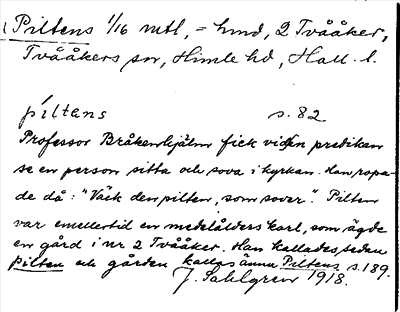 Piltens 1/16 mtl, = hmd, 2 Tvååker,
Tvååkers sn, Himle hd, Hall. l.
píltens s. 82
Professor Bråkenhjälm fick vid en predikan
se en person sitta och sova i kyrkan. Han ropa-
de då: "Väck den pilten, som sover". Pilten
var emellertid en medelålders karl, som ägde
en gård i nr 2 Tvååker. Han kallades sedan
Pilten och gården kallas ännu Piltens s. 189.
J. Sahlgren 1918.